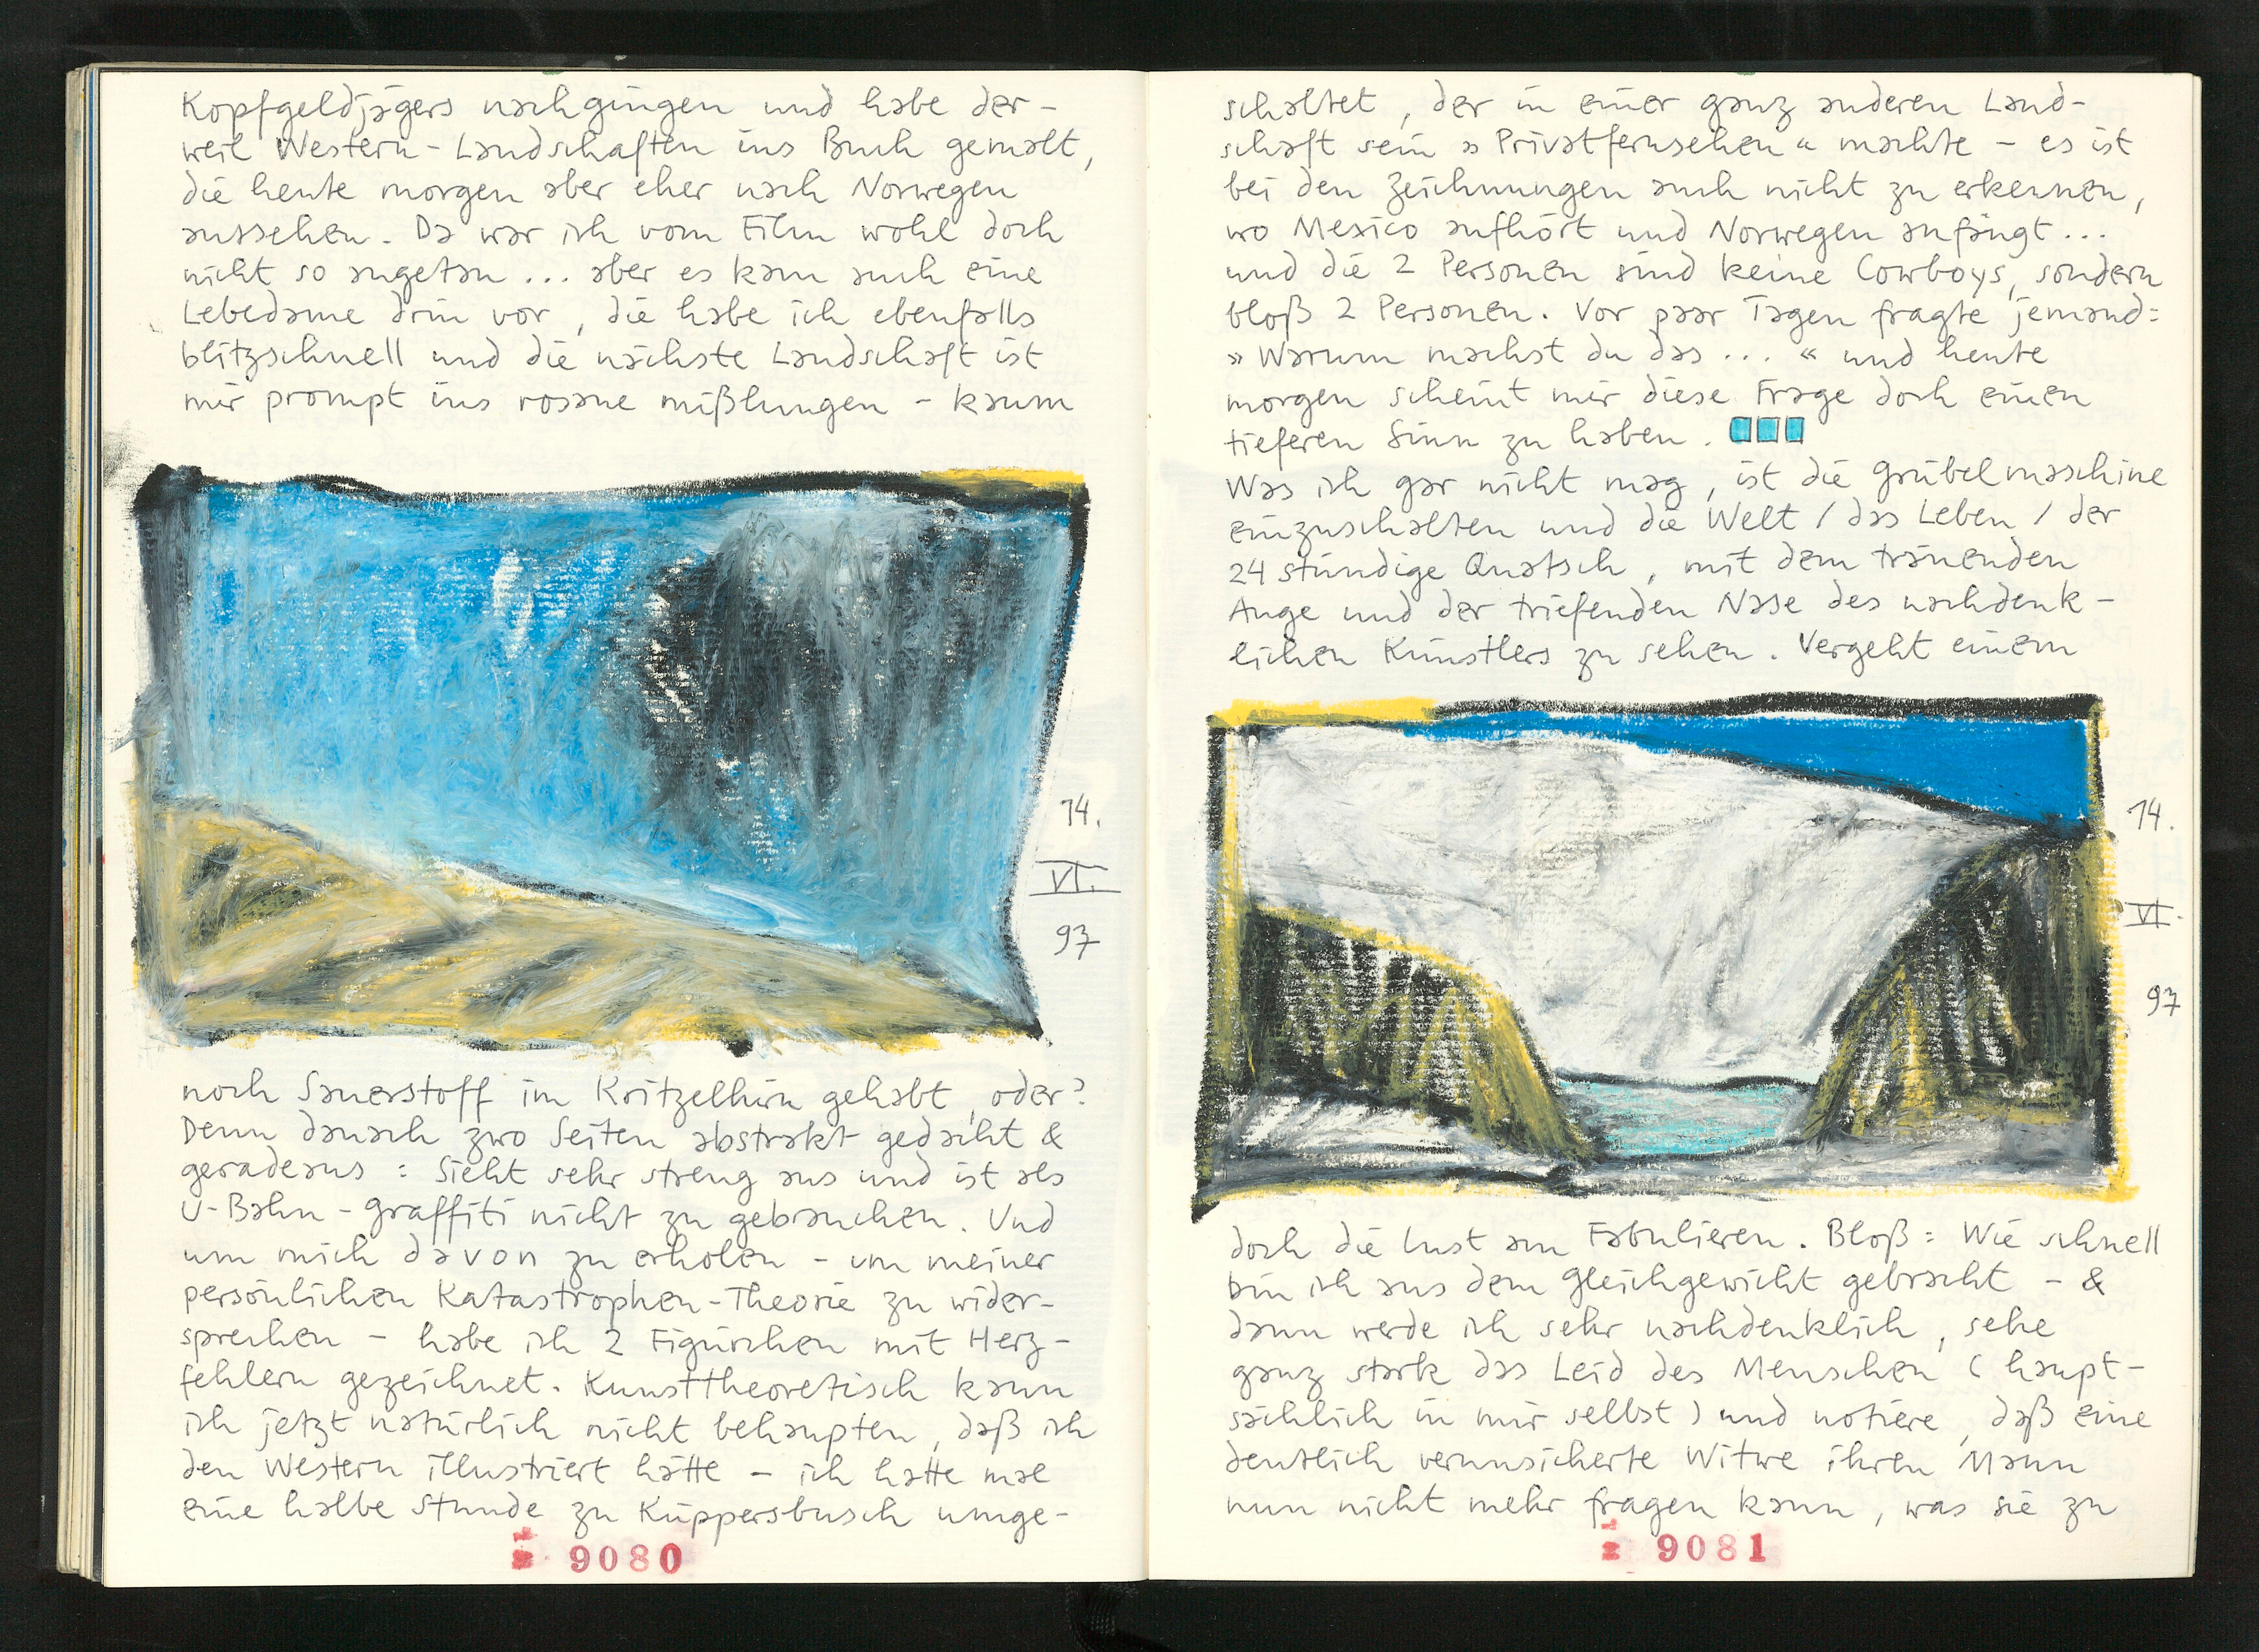 Kopfgeldjägers nachgingen und habe der-
weil Western-Landschaften ins Buch gemalt,
die heute morgen aber eher nach Norwegen
aussehen. Da war ich vom Film wohl doch
nicht so angetan ... aber es kam auch eine
Lebedame drin vor, die habe ich ebenfalls
blitzschnell und die nächste Landschaft ist
mir prompt ins rosane mißlungen - kaum
14.
VI.
97
noch Sauerstoff im Kritzelhirn gehabt, oder?
Denn danach zwo Seiten abstrakt gedacht &
geradeaus : Sieht sehr streng aus und ist als
U-Bahn-Graffiti nicht zu gebrauchen. Und
um mich davon zu erholen - um meiner
persönlichen Katastrophen-Theorie zu wider-
sprechen - habe ich 2 Figürchen mit Herz-
fehlern gezeichnet. Kunsttheoretisch kann
ich jetzt natürlich nicht behaupten, daß ich
den Western illustriert hätte - ich hatte mal
eine halbe Stunde zu Küppersbusch umge-
9080
schaltet, der in einer ganz anderen Land-
schaft sein »Privatfernsehen« machte - es ist
bei den Zeichnungen auch nicht zu erkennen,
wo Mexico aufhört und Norwegen anfängt ...
und die 2 Personen sind keine Cowboys, sondern
bloß 2 Personen. Vor paar Tagen fragte jemand:
»Warum machst du das ... « und heute
morgen scheint mir diese Frage doch einen
tieferen Sinn zu haben.
Was ich gar nicht mag, ist die Grübelmaschine
einzuschalten und die Welt / das Leben / der
24 stündige Quatsch, mit dem tränenden
Auge und der triefenden Nase des nachdenk-
lichen Künstlers zu sehen. Vergeht einem
14.
VI.
97
doch die Lust am Fabulieren. Bloß: Wie schnell
bin ich aus dem Gleichgewicht gebracht - &
dann werde ich sehr nachdenklich, sehe
ganz stark das Leid des Menschen (haupt-
sächlich in mir selbst) und notiere, daß eine
deutlich verunsicherte Witwe ihren Mann
nun nicht mehr fragen kann, was sie zu
9081